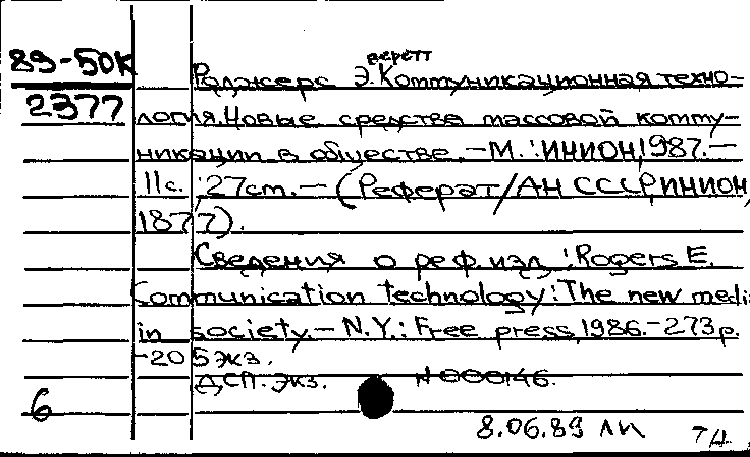 веретт
89-50К Роджерс Э. Коммуникационная техно-
2377 логия. Новые средства массовой комму-
никации в обществе. - М.: ИНИОН, 1987. -
11с. ; 27см. - (Реферат/АН СССР, ИНИОН,
1877).
Сведения о реф. изд.: Rogers E.
Communication technology: The new media
in society. - N.Y.: Free press, 1986. - 273p.
-205экз.
ДСП. Экз. №000146.
6
8.06.89 ЛИ